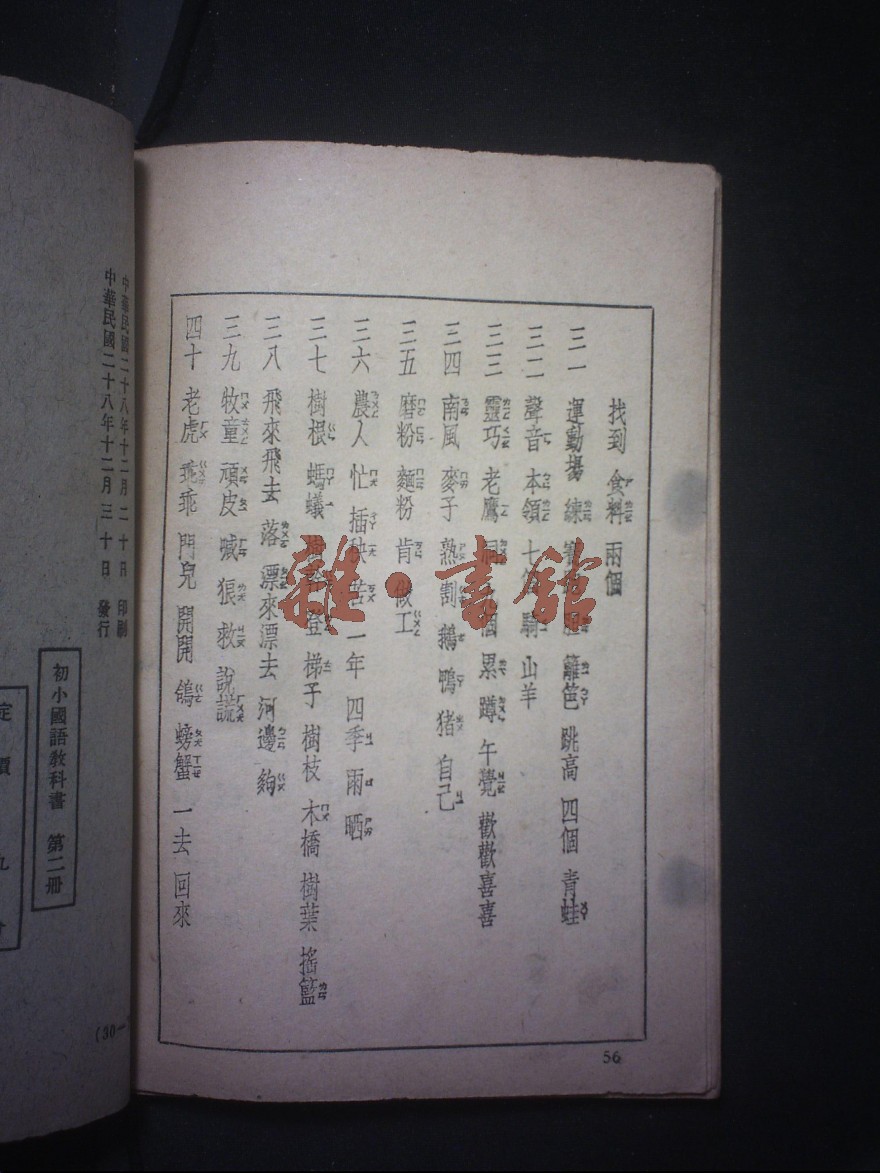 找到 食料 兩個
三一 運動場 練 籬笆 跳高 四個 青蛙
三二 聲音 本領 七 騎 山羊
三三 靈巧 老鷹 個 累 蹲 午覺 歡歡喜喜
三四 南風 麥子 熟 割 鵝 鴨 猪 自己
三五 磨粉 麵粉 肯 做工
三六 農人 忙 插秧 苦 一年 四季 雨 晒
三七 樹根 螞蟻 樹幹 登 梯子 樹枝 木橋 樹葉 搖籃
三八 飛來飛去 落 漂來漂去 河邊 夠
三九 牧童 頑皮 喊 狼 救 說謊
四十 老虎 乖乖 門兒 開開 鴿 螃蟹 一去 回來
56
雜·書館
中華民國二十八年十二月二十日 印刷
中華民國二十八年十二月三十日 發行
初小國語教科書 第二册
定價
(30—